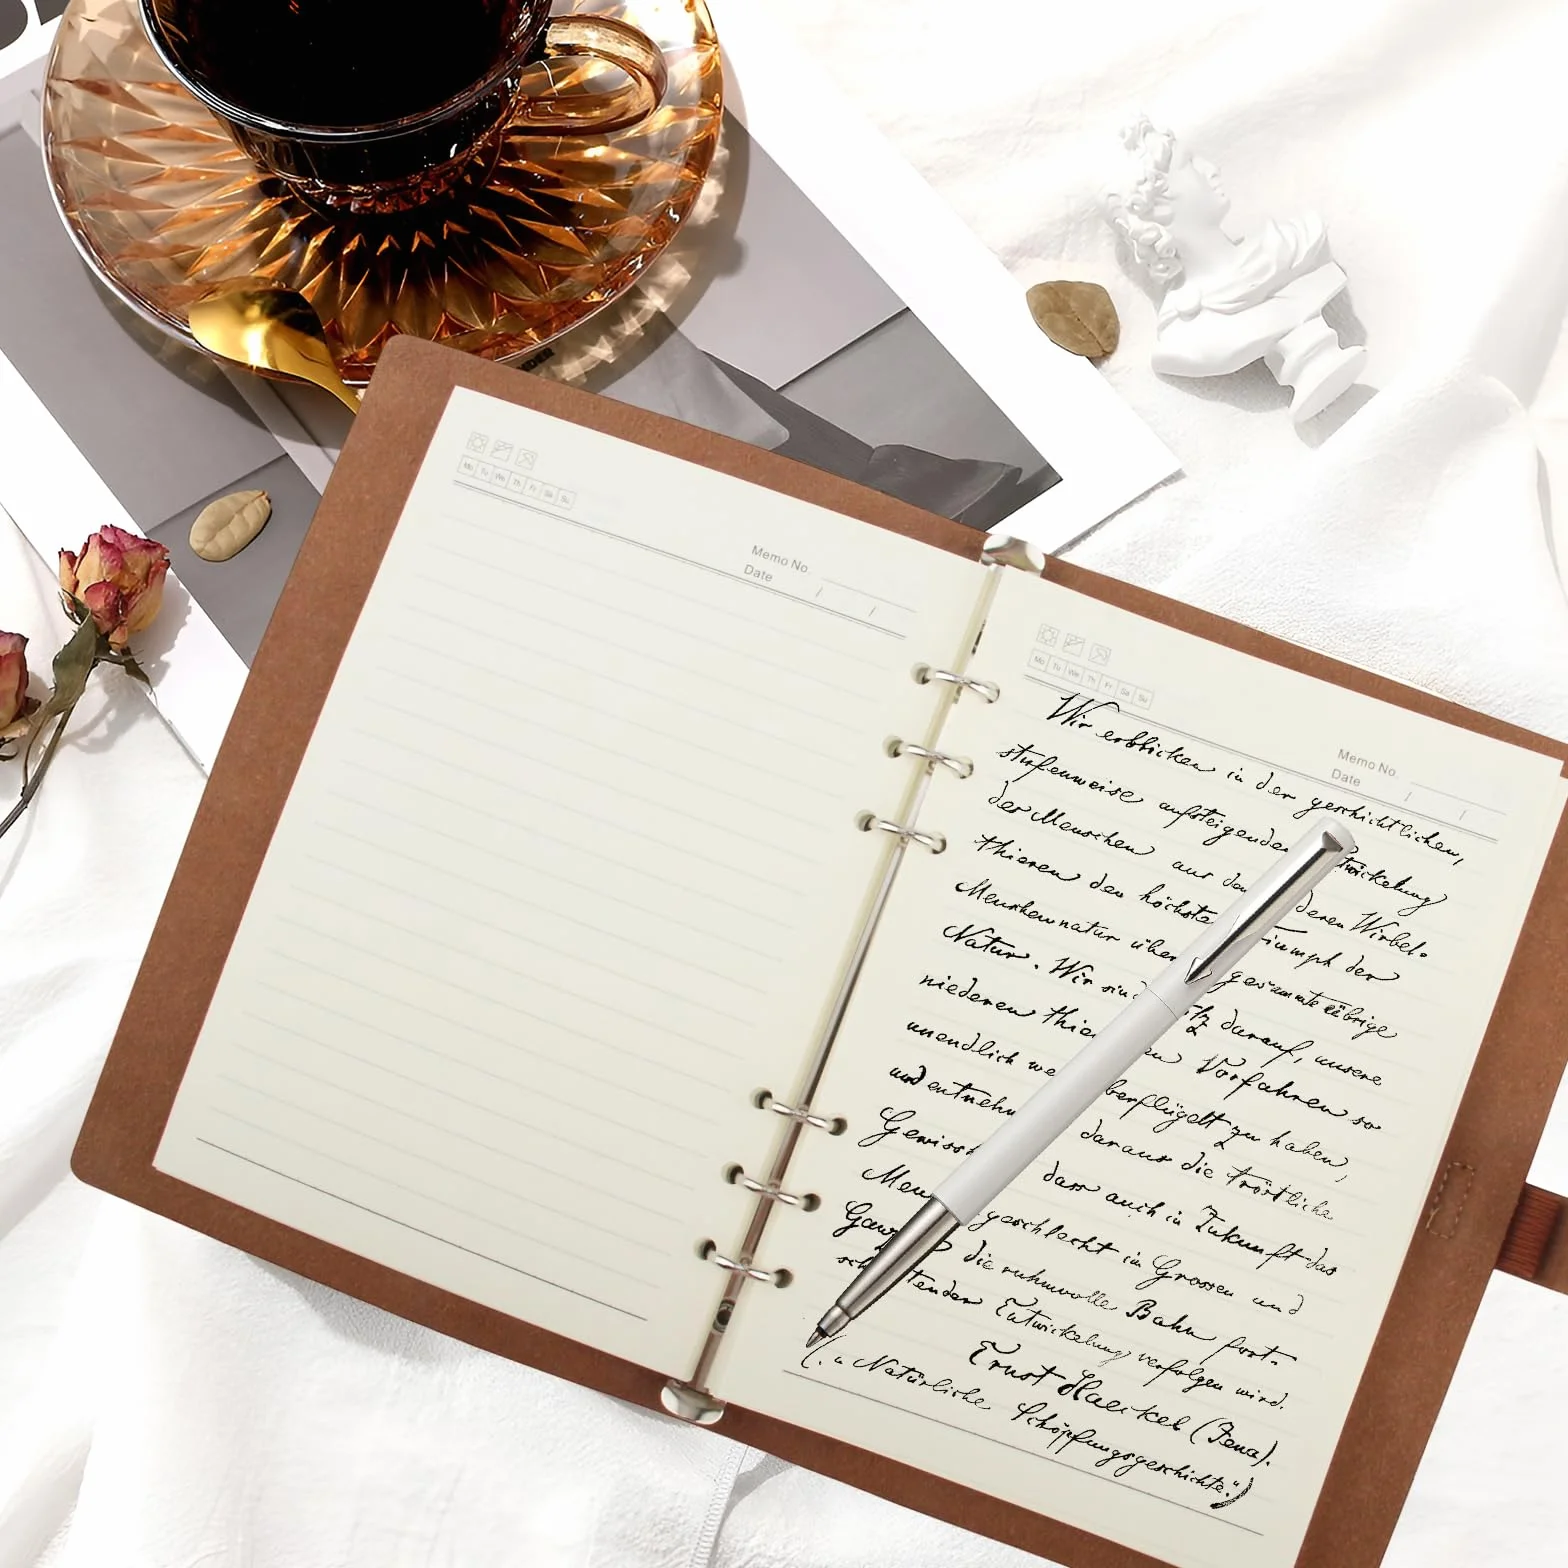 Mo Tu We Th Fr Sa Su
Memo No.
Date / /
Mo Tu We Th Fr Sa Su
Memo No.
Date / /
Wir erblicken in der geschichtlichen,
stufenweise aufsteigenden
der Menschen aus den Wirbel-
thieren den höchsten Triumph der
Menschennatur über gesammte übrige
Natur. Wir sind darauf, unsere
niederen Vorfahren so
unendlich überflügelt zu haben,
und entnehmen daraus die tröstliche
dass auch in Zukunft das
geschlecht im Grossen und
die ruhmvolle Bahn fort-
Entwickelung verfolgen wird.
Ernst Haeckel (Jena).
(„Natürliche Schöpfungsgeschichte.“)